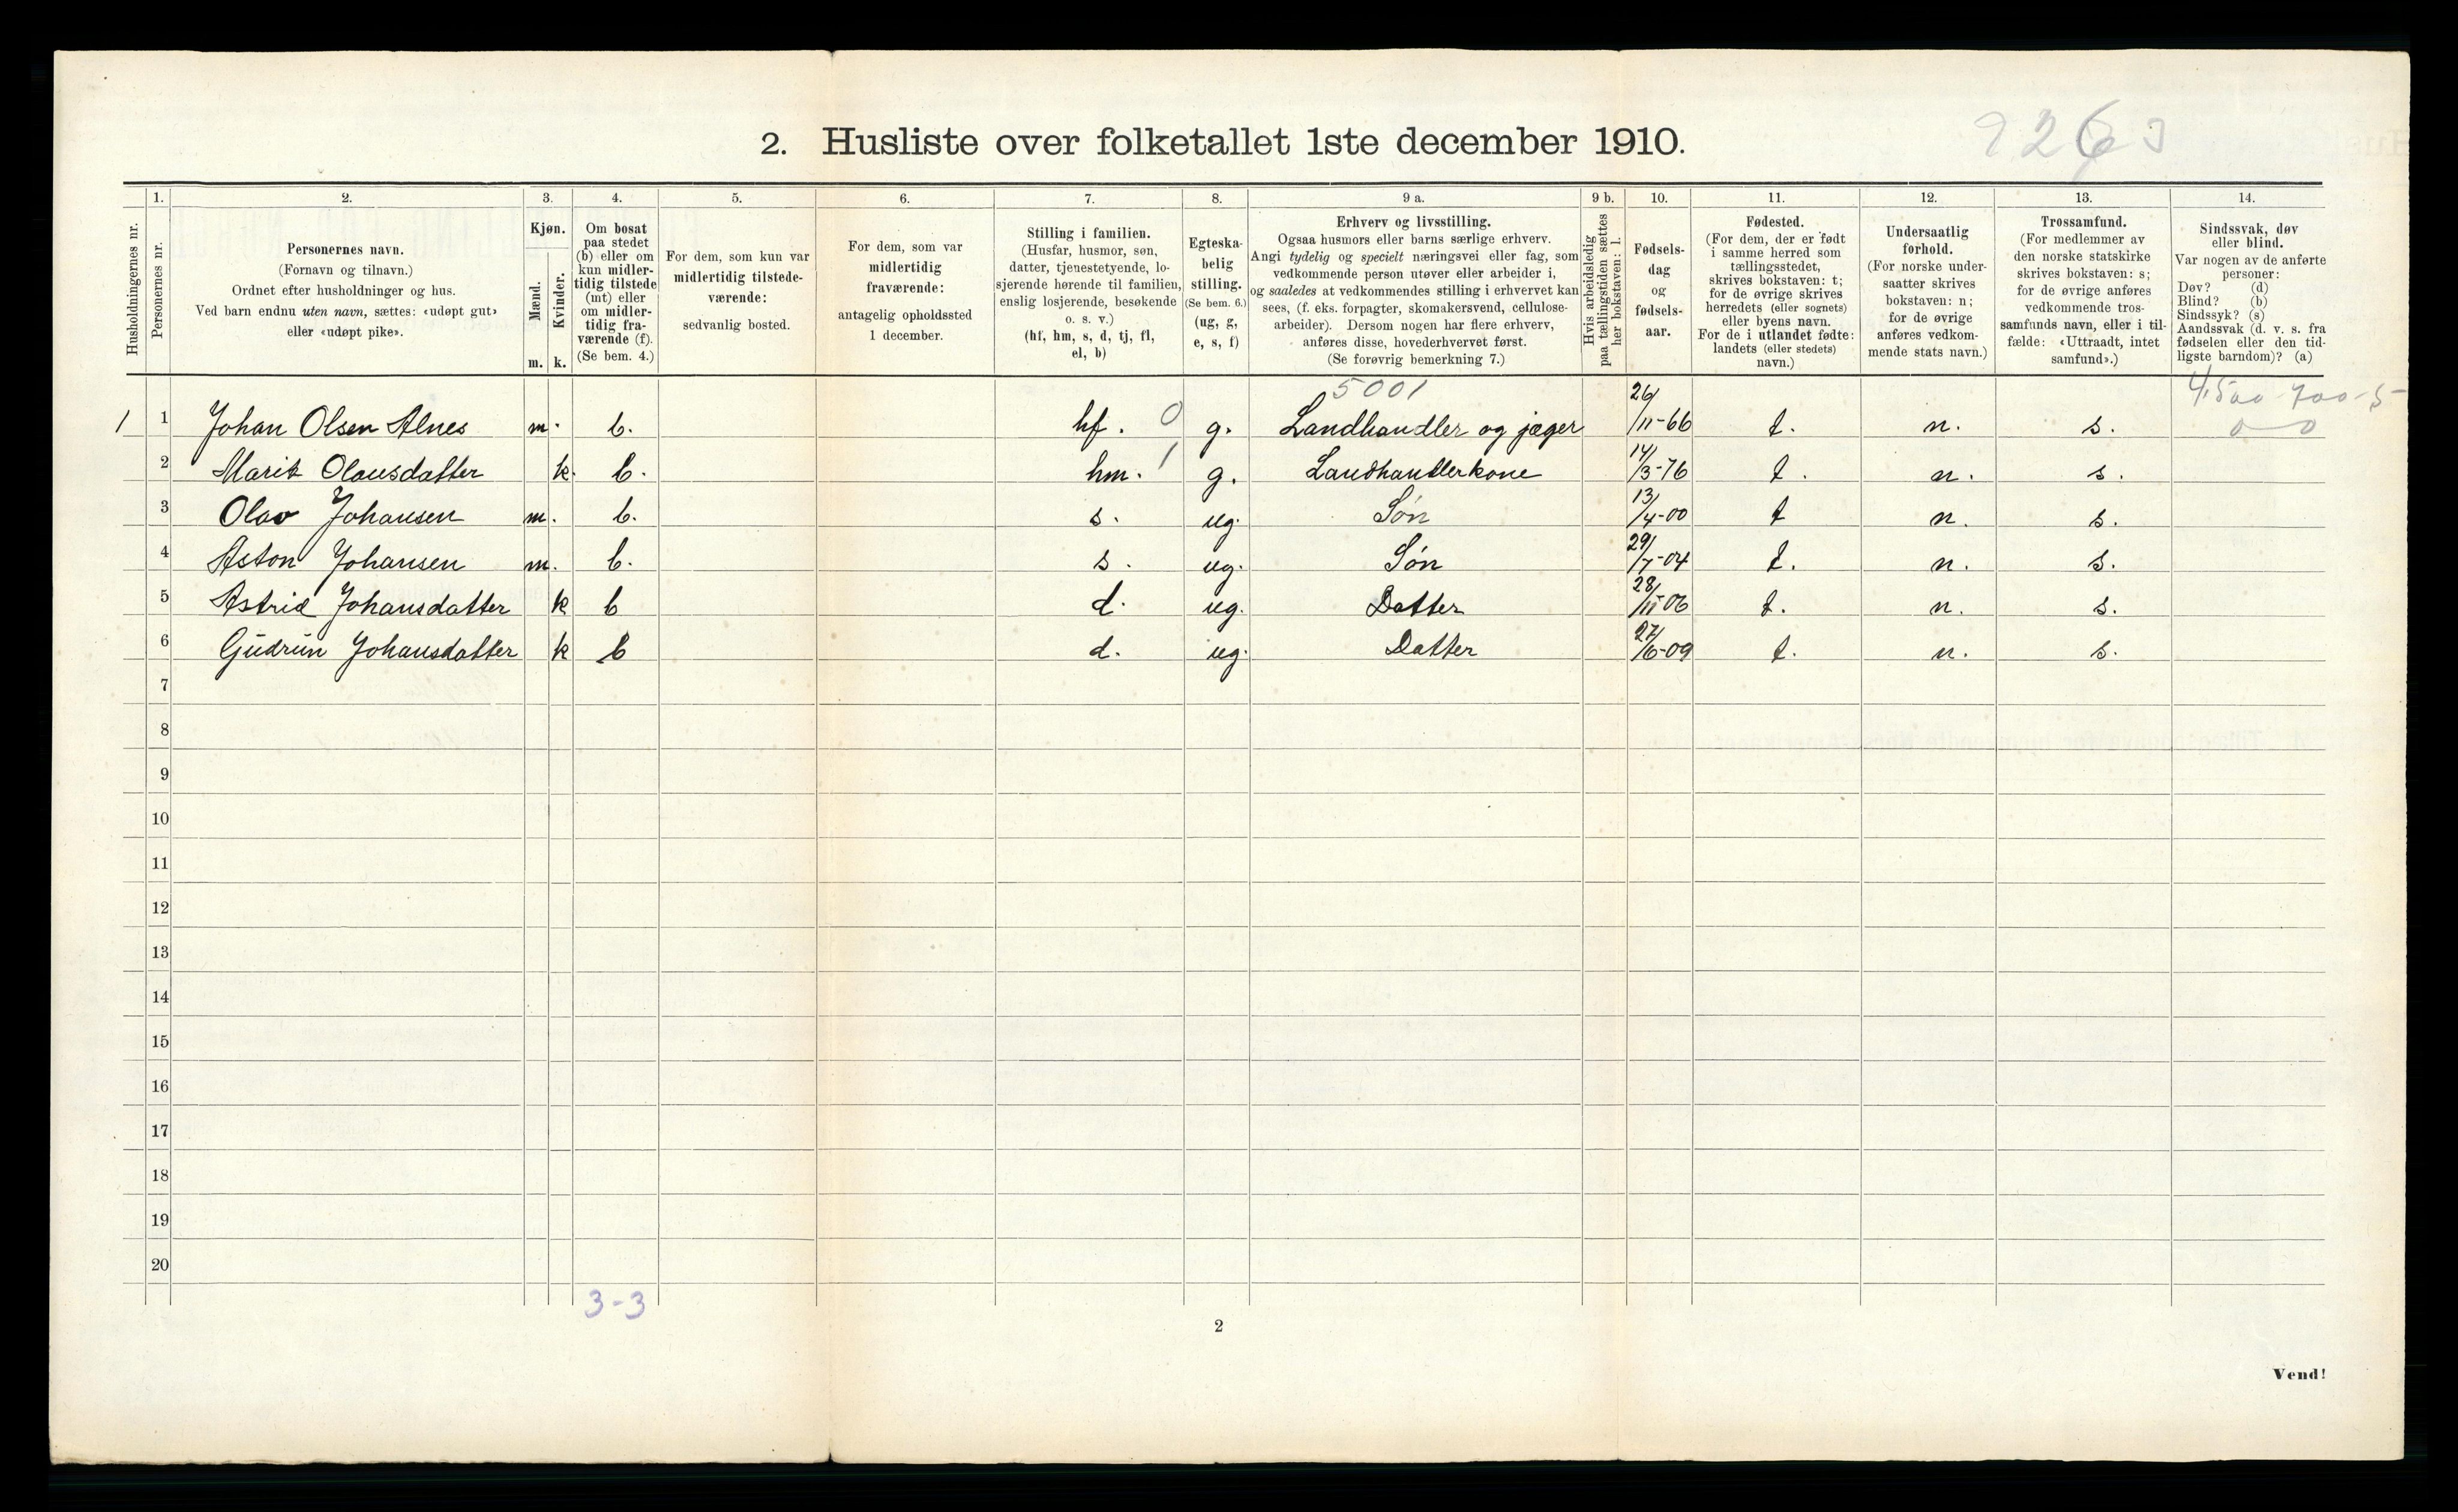 2. Husliste over folketallet 1ste december 1910.
Husholdningernes nr.
1.
Personernes nr.
2.
Personernes navn.
(Fornavn og tilnavn.)
Ordnet efter husholdninger og hus.
Ved barn endnu uten navn, sættes: «udøpt gut»
eller «udøpt pike».
3.
Kjøn.
Mænd.
Kvinder.
m. k.
4.
Om bosat
paa stedet
(b) eller om
kun midler-
tidig tilstede
(mt) eller
om midler-
tidig fra-
værende (f).
(Se bem. 4.)
5.
For dem, som kun var
midlertidig tilstede-
værende:
sedvanlig bosted.
6.
For dem, som var
midlertidig
fraværende:
antagelig opholdssted
1 december.
7.
Stilling i familien.
(Husfar, husmor, søn,
datter, tjenestetyende, lo-
sjerende hørende til familien,
enslig losjerende, besøkende
o. s. v.)
(hf, hm, s, d, tj, fl,
el, b)
8.
Egteska-
belig
stilling.
(Se bem. 6.)
(ug, g,
e, s, f)
9 a.
Erhverv og livsstilling.
Ogsaa husmors eller barns særlige erhverv.
Angi tydelig og specielt næringsvei eller fag, som
vedkommende person utøver eller arbeider i,
og saaledes at vedkommendes stilling i erhvervet kan
sees, (f. eks. forpagter, skomakersvend, cellulose-
arbeider). Dersom nogen har flere erhverv,
anføres disse, hovederhvervet først.
(Se forøvrig bemerkning 7.)
9 b.
Hvis arbeidsledig
paa tællingstiden sættes
her bokstaven: l.
10.
Fødsels-
dag
og
fødsels-
aar.
11.
Fødested.
(For dem, der er født
i samme herred som
tællingsstedet,
skrives bokstaven: t;
for de øvrige skrives
herredets (eller sognets)
eller byens navn.
For de i utlandet fødte:
landets (eller stedets)
navn.)
12.
Undersaatlig
forhold.
(For norske under-
saatter skrives
bokstaven: n;
for de øvrige
anføres vedkom-
mende stats navn.)
13.
Trossamfund.
(For medlemmer av
den norske statskirke
skrives bokstaven: s;
for de øvrige anføres
vedkommende tros-
samfunds navn, eller i til-
fælde: «Uttraadt, intet
samfund».)
14.
Sindssvak, døv
eller blind.
Var nogen av de anførte
personer:
Døv? (d)
Blind? (b)
Sindssyk? (s)
Aandssvak (d. v. s. fra
fødselen eller den tid-
ligste barndom)? (a)
5001
1 1 Johan Olsen Alnes m. b. hf. 0 g. Landhandler og jæger 26/11-66 t. n. s.
2 Marit Olausdatter k. b. hm. 1 g. Landhandlerkone 14/3-76 t. n. s.
3 Olav Johansen m. b. s. ug. Søn 13/4-00 t n. s.
4 Aston Johansen m. b. s. ug. Søn 29/7-04 t. n. s.
5 Astrid Johansdatter k b d. ug. Datter 28/11-06 t. n. s.
6 Gudrun Johansdatter k b d. ug. Datter 27/6-09 t. n. s.
7
8
9
10
11
12
13
14
15
16
17
18
19
20
3-3
2
Vend!